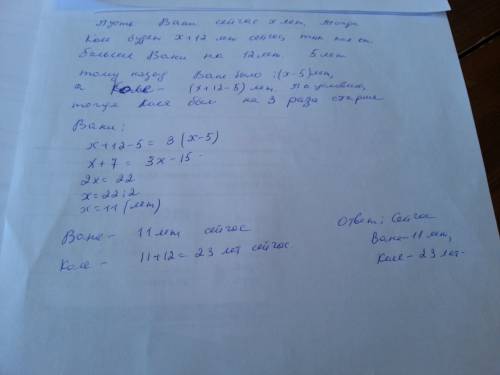 Пусть Вани сейчас x лет, тогда
Коле будет x+12 лет сейчас, так как он
больше Вани на 12 лет. 5 лет
тому назад Ване было :(x-5) лет,
а Коле - (x+12-5) лет. По условию,
тогда Коля был на 3 раза старше
Вани:
x+12-5 = 3(x-5)
x+7 = 3x-15
2x = 22
x=22:2
x=11 (лет)
Ване - 11 лет сейчас
Коле - 11+12=23 лет сейчас.
Ответ: Сейчас
Ване-11 лет,
Коле-23 лет.